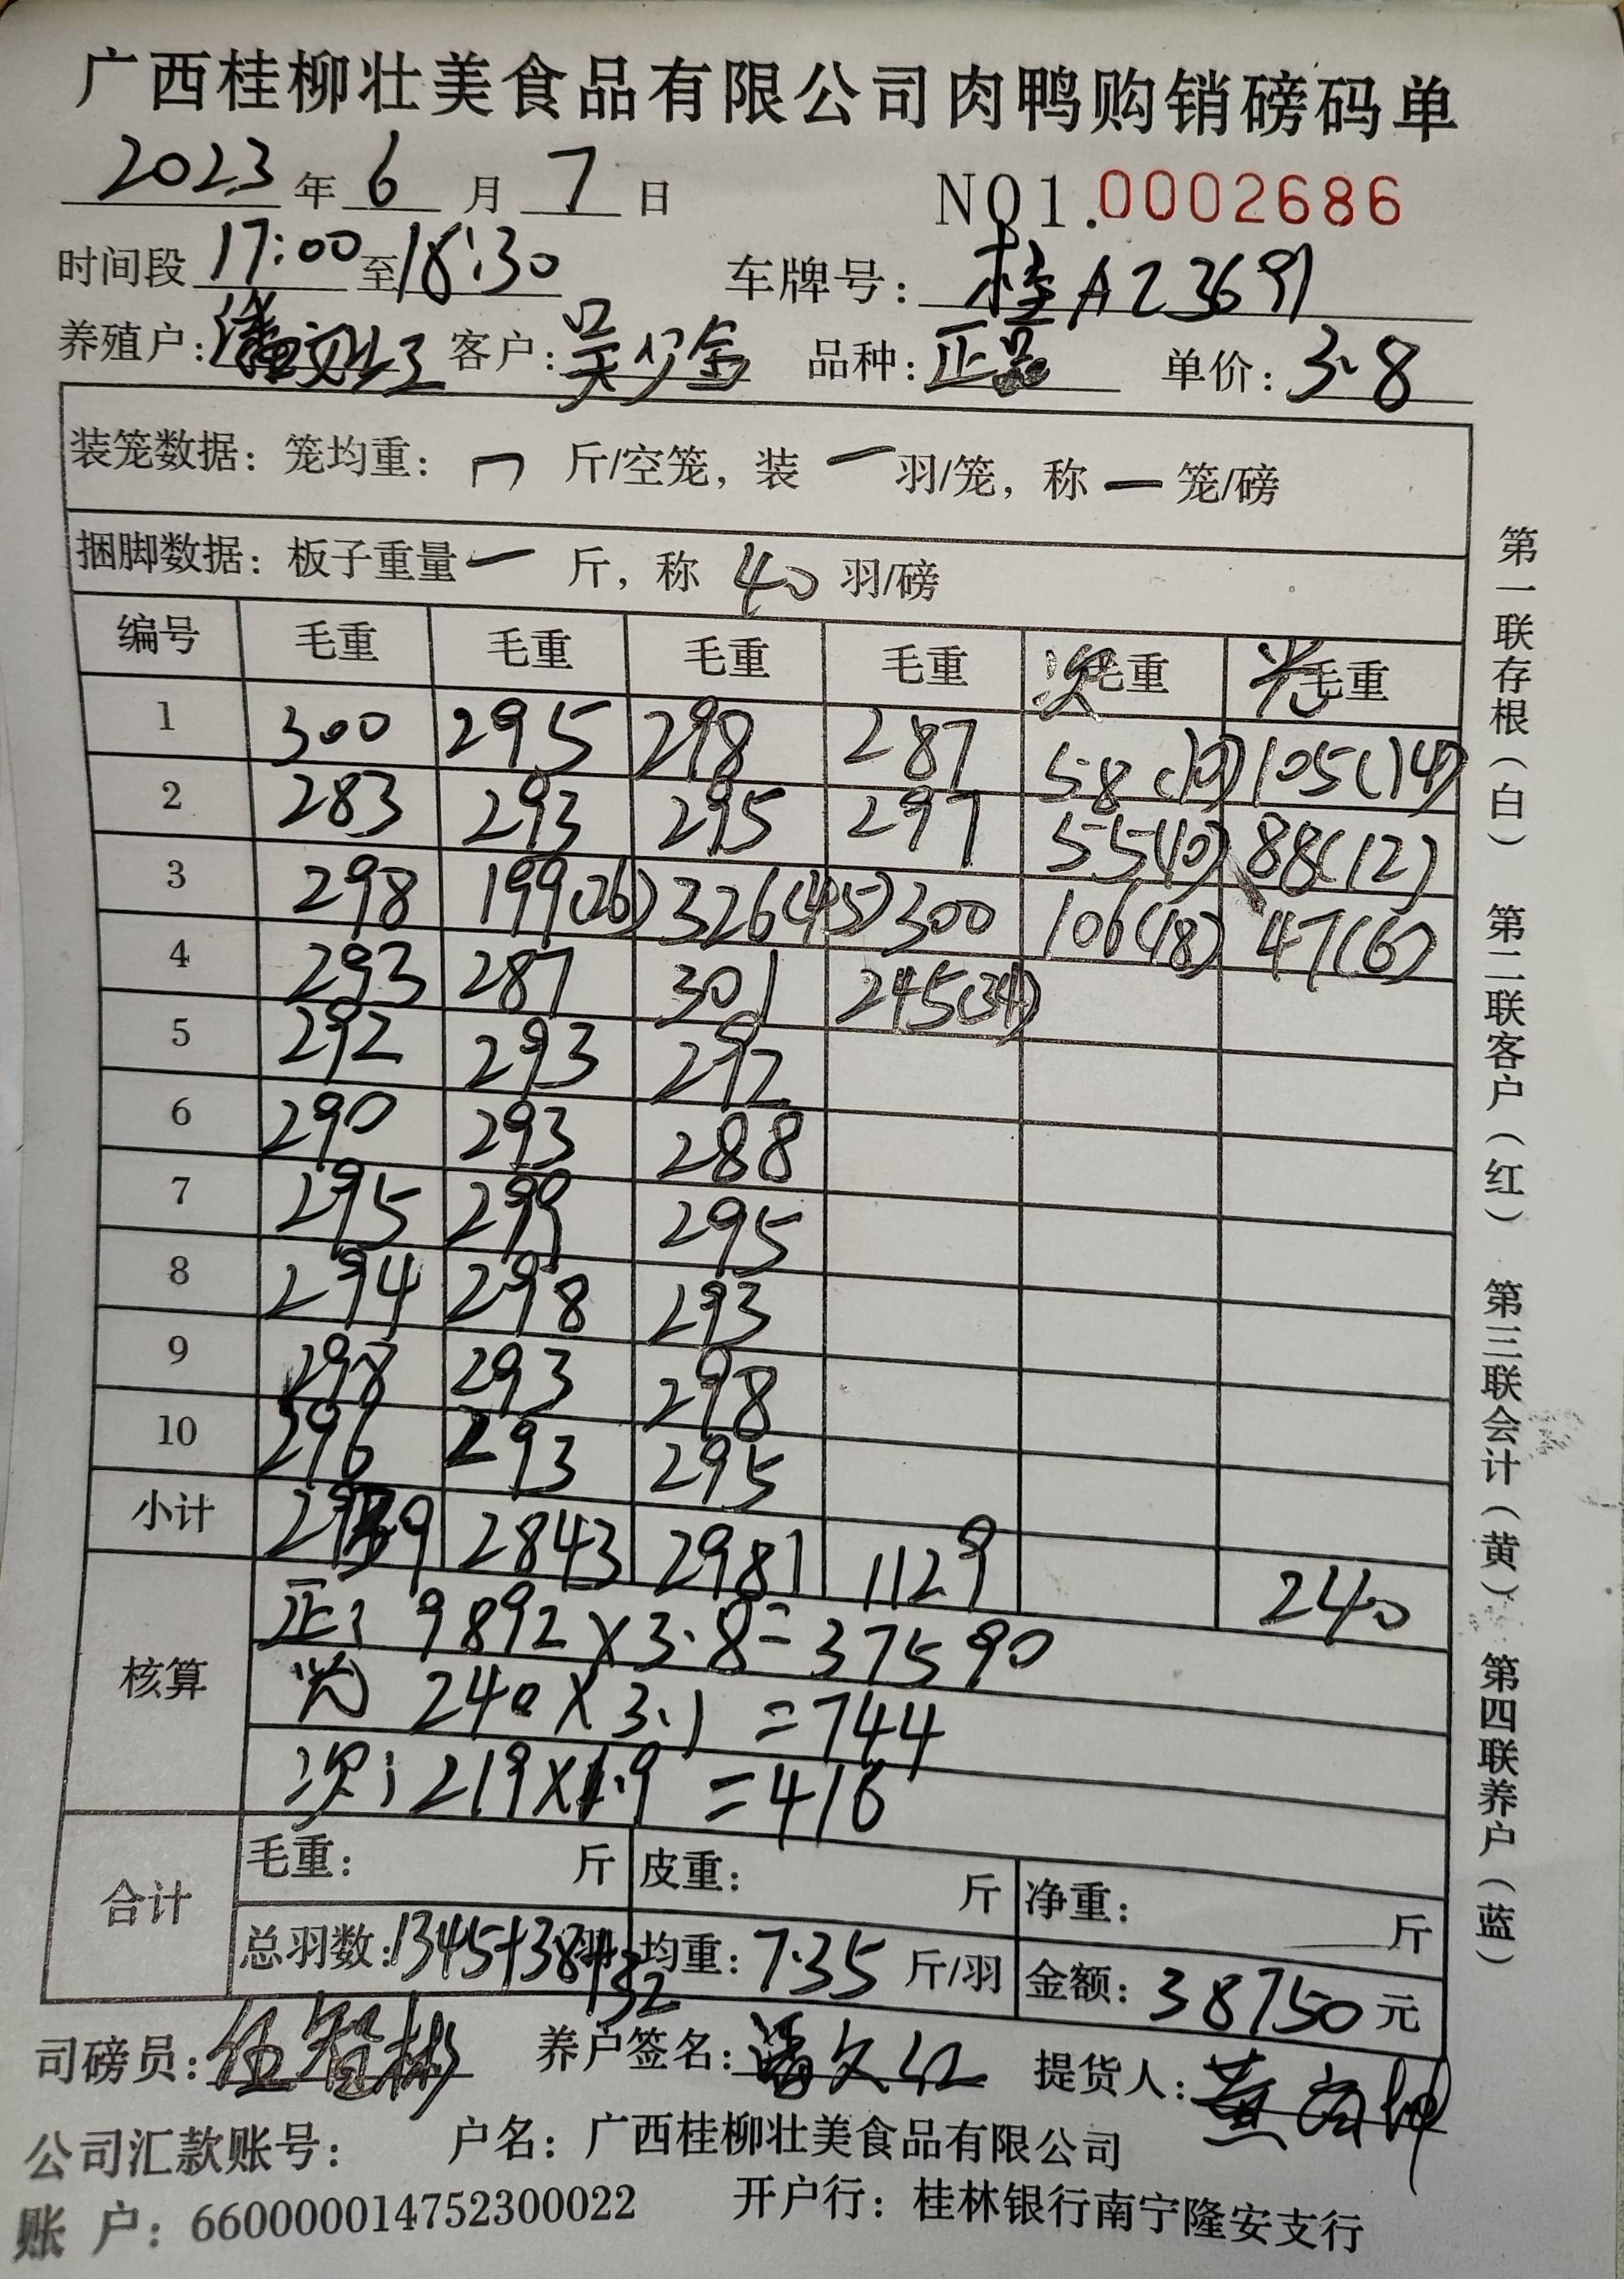 广西桂柳壮美食品有限公司肉鸭购销磅码单
2023年6月7日 NO1.0002686
时间段 17:00至18:30 车牌号: 桂A23691
养殖户:潘文红 客户:吴少金 品种:正品 单价:3.8
装笼数据:笼均重: 斤/空笼,装 一 羽/笼,称 一 笼/磅
捆脚数据:板子重量 一 斤,称 40 羽/磅
编号 毛重 毛重 毛重 毛重 次毛重 光毛重
1 300 295 298 287 58(10) 105(14)
2 283 293 295 297 55(10) 88(12)
3 298 199(26) 326(45) 300 106(18) 47(6)
4 293 287 301 245(34)
5 292 293 292
6 290 293 288
7 295 299 295
8 294 298 293
9 298 293 298
10 296 293 295
小计 2939 2843 2981 1129 240
核算 正: 9892×3.8=37590
光 240×3.1=744
次: 219×1.9=416
合计 毛重: 斤 皮重: 斤 净重: 斤
总羽数:1345+38+32羽 均重:7.35斤/羽 金额:38750元
司磅员:伍智彬 养户签名:潘文红 提货人:黄
公司汇款账号: 户名:广西桂柳壮美食品有限公司
账 户:660000014752300022 开户行:桂林银行南宁隆安支行
第一联存根(白) 第二联客户(红) 第三联会计(黄) 第四联养户(蓝)